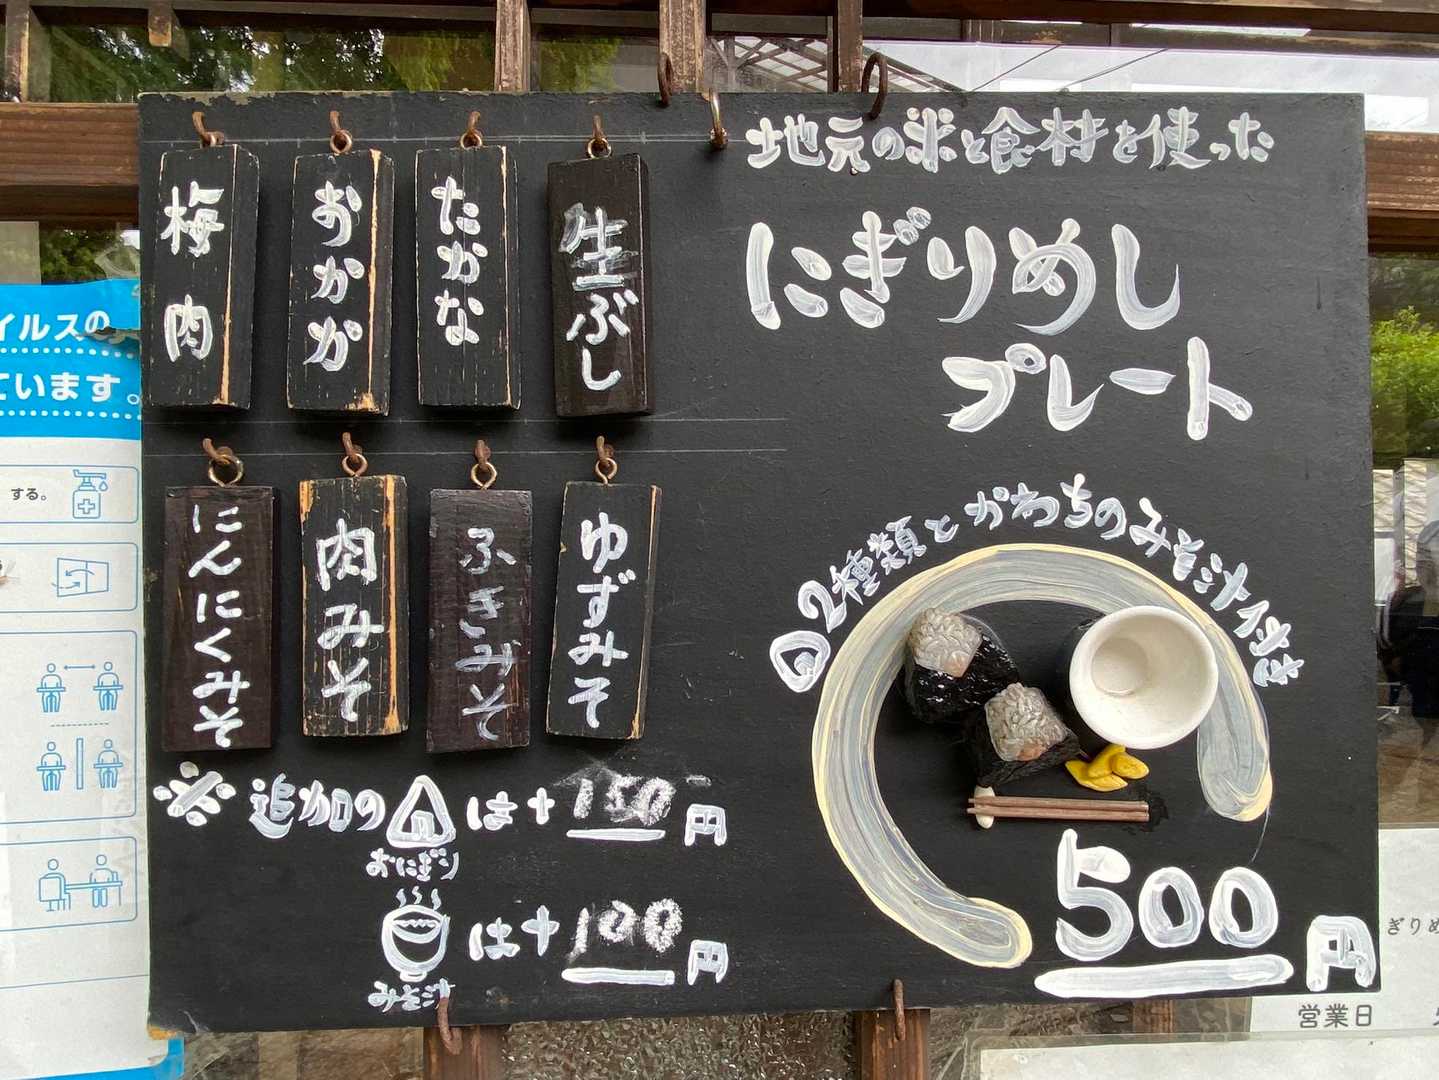 地元の米と食材を使った
にぎりめし
プレート
2種類とかわちのみそ汁付き
500円
梅肉
おかか
たかな
生ぶし
にんにくみそ
肉みそ
ふきみそ
ゆずみそ
※追加の
おにぎり
は+150円
みそ汁
は+100円
イルスの
ています。
する。
ぎりめ
営業日